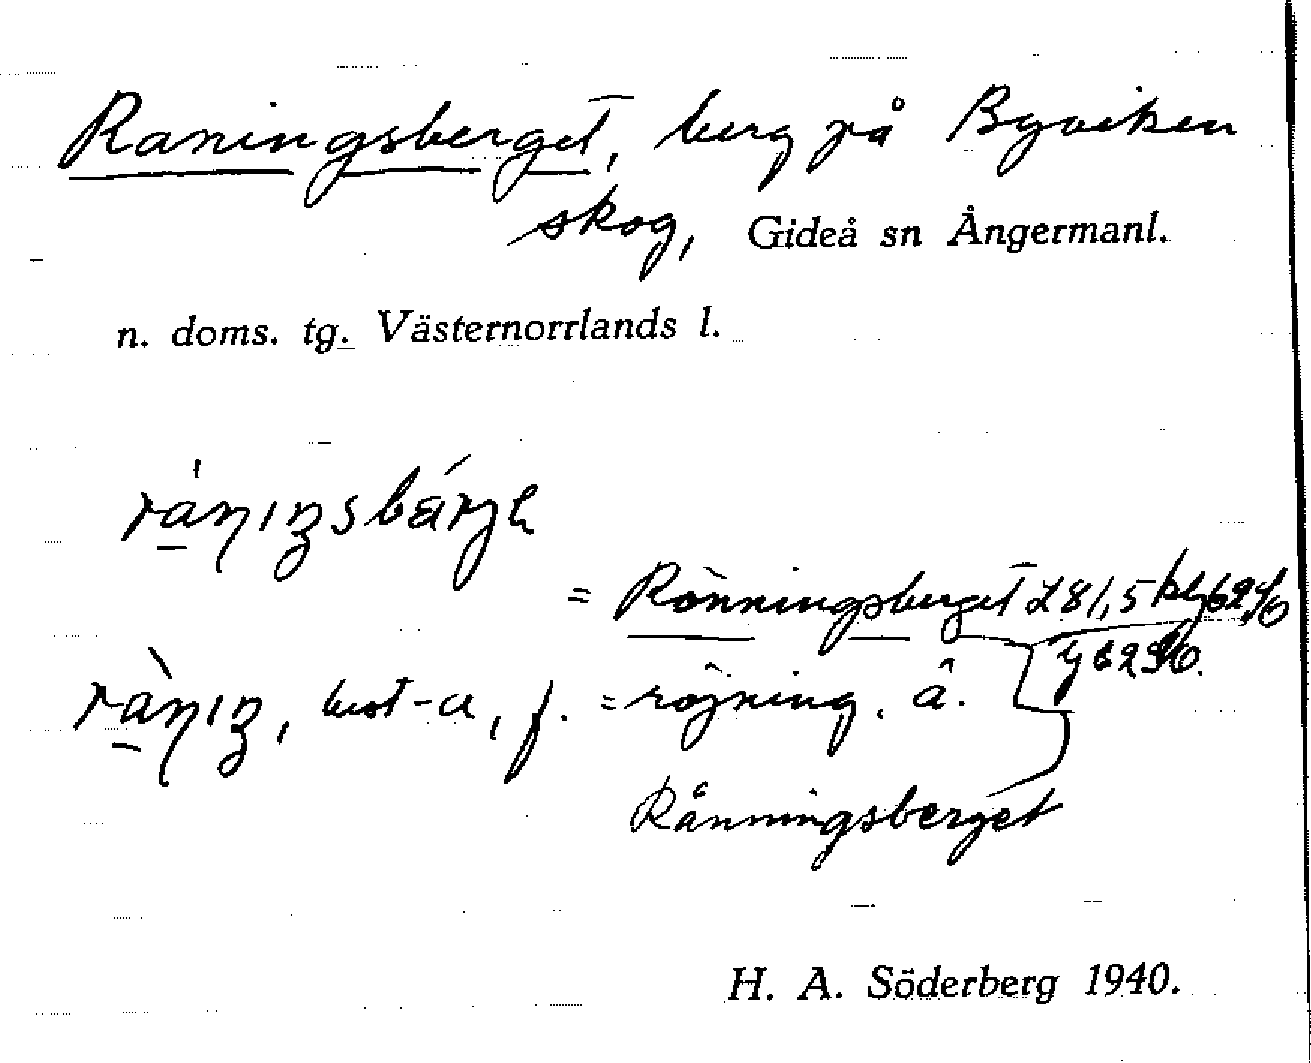 Raningsberget, berg på Byviken
skog, Gideå sn Ångermanl.
n. doms. tg. Västernorrlands l.
= Rönningsberget 281,5
best -a, f. = röjning.
Rånningsberget
H. A. Söderberg 1940.